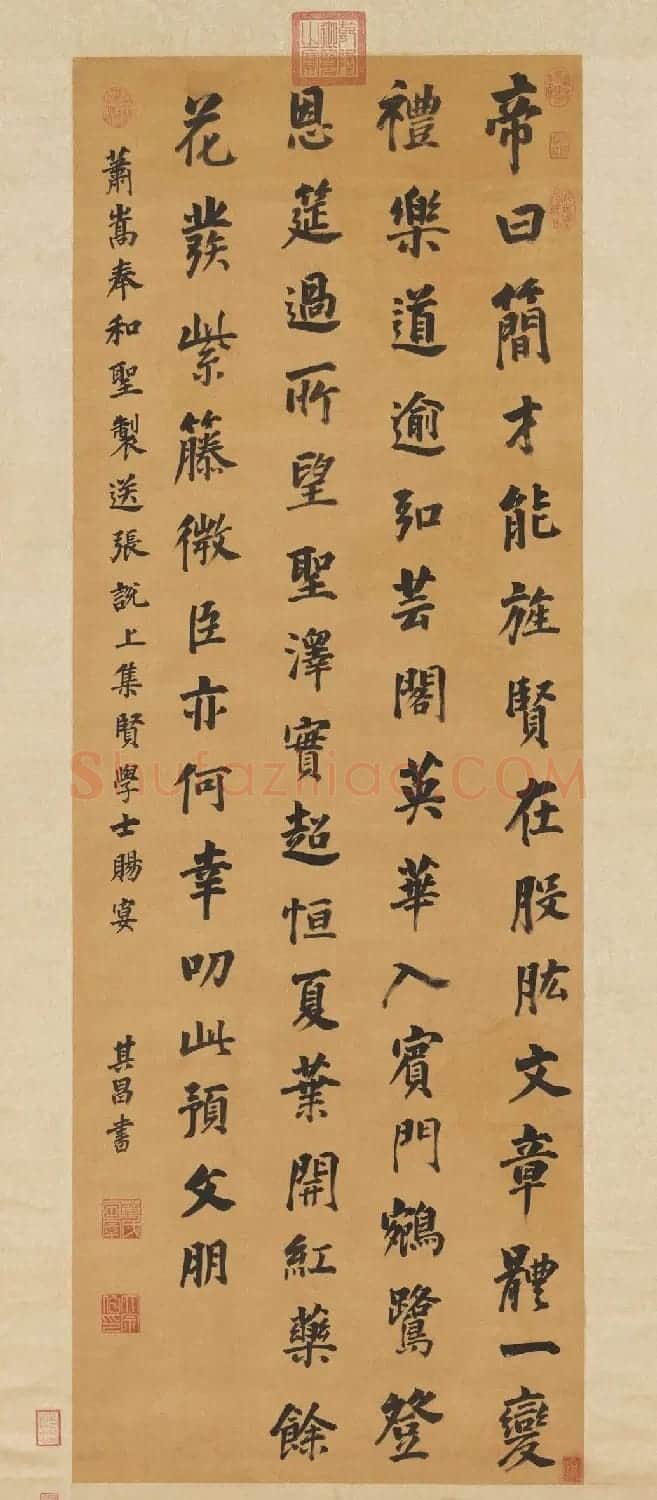 帝曰簡才能旌賢在股肱文章體一變
禮樂道逾弘芸閣英華入賓門鵷鷺登
恩筵過所望聖澤實超恒夏葉開紅藥餘
花發紫藤微臣亦何幸叨此預文朋
蕭嵩奉和聖製送張說上集賢學士賜宴
其昌書
Shufaziliao.COM